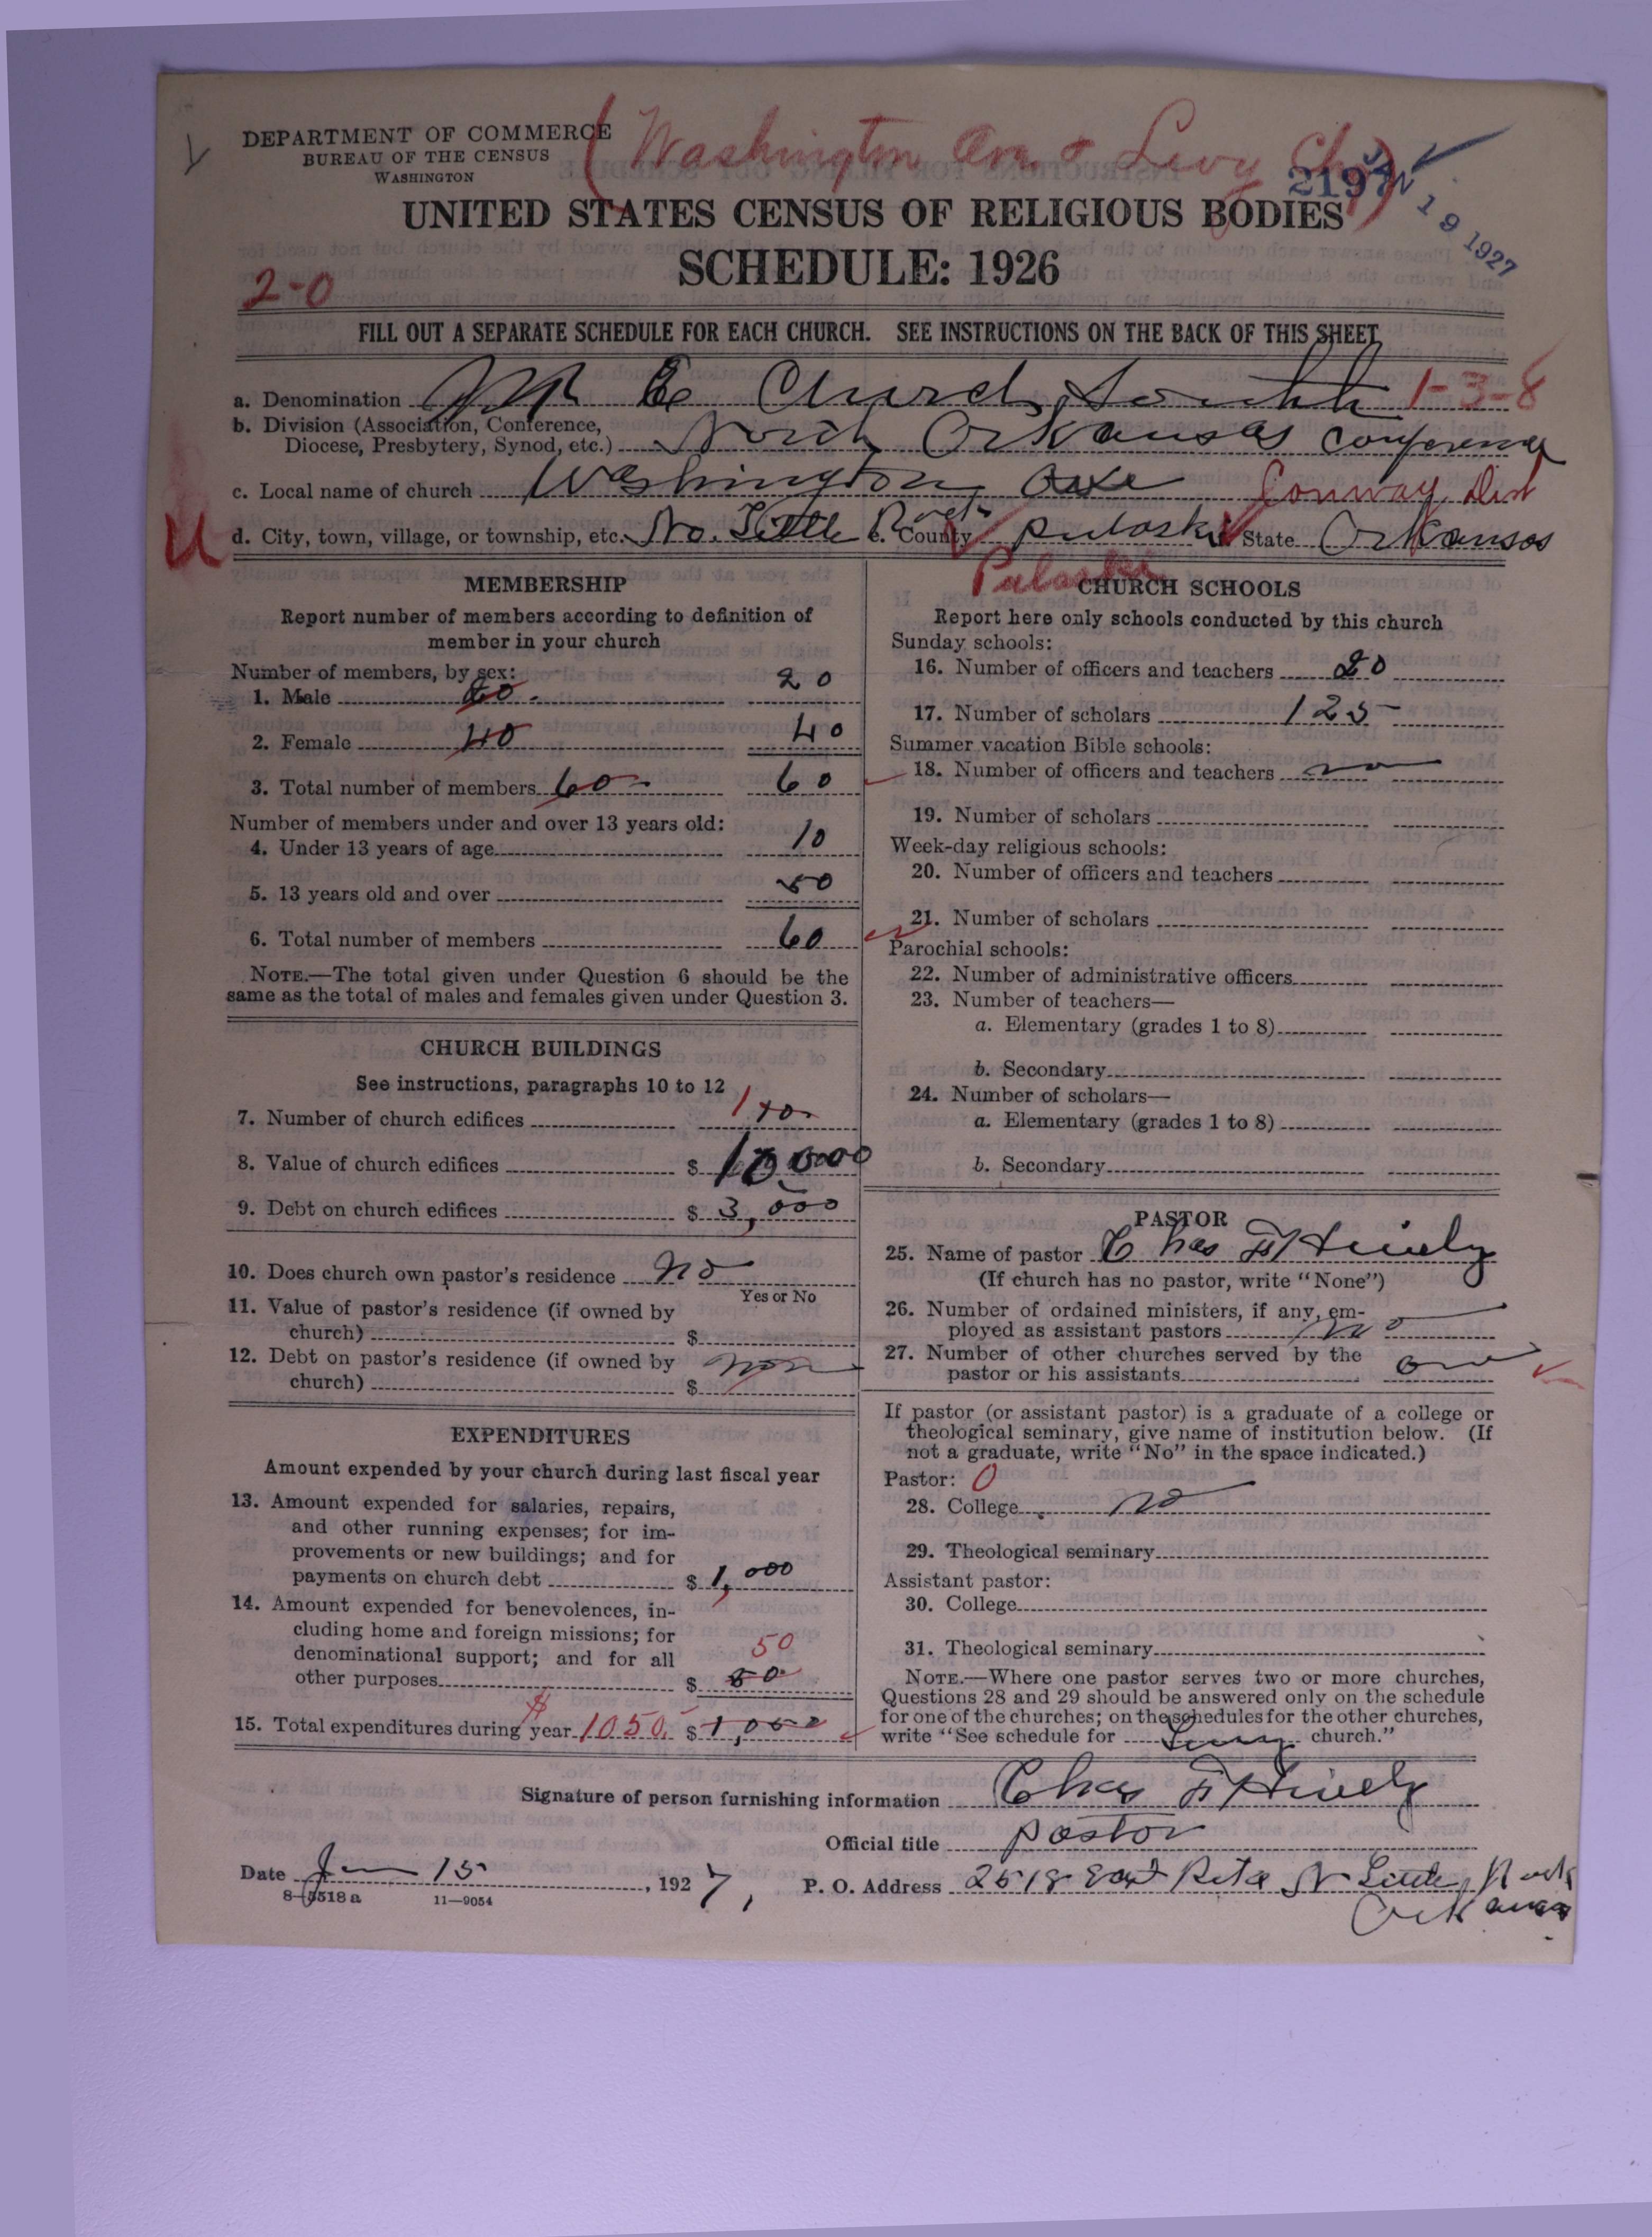 DEPARTMENT OF COMMERCE
BUREAU OF THE CENSUS
WASHINGTON
(Washington Av. & Levy Ch.)
2197
JAN 19 1927
UNITED STATES CENSUS OF RELIGIOUS BODIES
SCHEDULE: 1926
2-0
FILL OUT A SEPARATE SCHEDULE FOR EACH CHURCH. SEE INSTRUCTIONS ON THE BACK OF THIS SHEET
a. Denomination M E Church, South 1-3-8
b. Division (Association, Conference,
Diocese, Presbytery, Synod, etc.) North Arkansas Conference
c. Local name of church Washington Ave Conway Dist
U d. City, town, village, or township, etc. No. Little Rock e. County Pulaski State Arkansas
Pulaski
MEMBERSHIP
Report number of members according to definition of
member in your church
Number of members, by sex:
1. Male 20 20
2. Female 40 40
3. Total number of members 60 60
Number of members under and over 13 years old:
4. Under 13 years of age 10
5. 13 years old and over 50
6. Total number of members 60
NOTE.—The total given under Question 6 should be the
same as the total of males and females given under Question 3.
CHURCH BUILDINGS
See instructions, paragraphs 10 to 12
7. Number of church edifices 1
8. Value of church edifices $ 10,000
9. Debt on church edifices $ 3,000
10. Does church own pastor's residence no
Yes or No
11. Value of pastor's residence (if owned by
church) $
12. Debt on pastor's residence (if owned by
church) $ non
EXPENDITURES
Amount expended by your church during last fiscal year
13. Amount expended for salaries, repairs,
and other running expenses; for im-
provements or new buildings; and for
payments on church debt $ 1,000
14. Amount expended for benevolences, in-
cluding home and foreign missions; for
denominational support; and for all
other purposes $ 50
50
15. Total expenditures during year $1050. $ 1,050
CHURCH SCHOOLS
Report here only schools conducted by this church
Sunday schools:
16. Number of officers and teachers 20
17. Number of scholars 125
Summer vacation Bible schools:
18. Number of officers and teachers no
19. Number of scholars
Week-day religious schools:
20. Number of officers and teachers
21. Number of scholars
Parochial schools:
22. Number of administrative officers
23. Number of teachers—
a. Elementary (grades 1 to 8)
b. Secondary
24. Number of scholars—
a. Elementary (grades 1 to 8)
b. Secondary
PASTOR
25. Name of pastor Chas F Hively
(If church has no pastor, write "None")
26. Number of ordained ministers, if any, em-
ployed as assistant pastors no
27. Number of other churches served by the
pastor or his assistants one
If pastor (or assistant pastor) is a graduate of a college or
theological seminary, give name of institution below. (If
not a graduate, write "No" in the space indicated.)
Pastor: 0
28. College no
29. Theological seminary
Assistant pastor:
30. College
31. Theological seminary
NOTE.—Where one pastor serves two or more churches,
Questions 28 and 29 should be answered only on the schedule
for one of the churches; on the schedules for the other churches,
write "See schedule for Levy church."
Signature of person furnishing information Chas F Hively
Official title pastor
Date Jan 15, 1927, P. O. Address 2518 East Rita N Little Rock
Arkansas
8-5518 a 11-9054